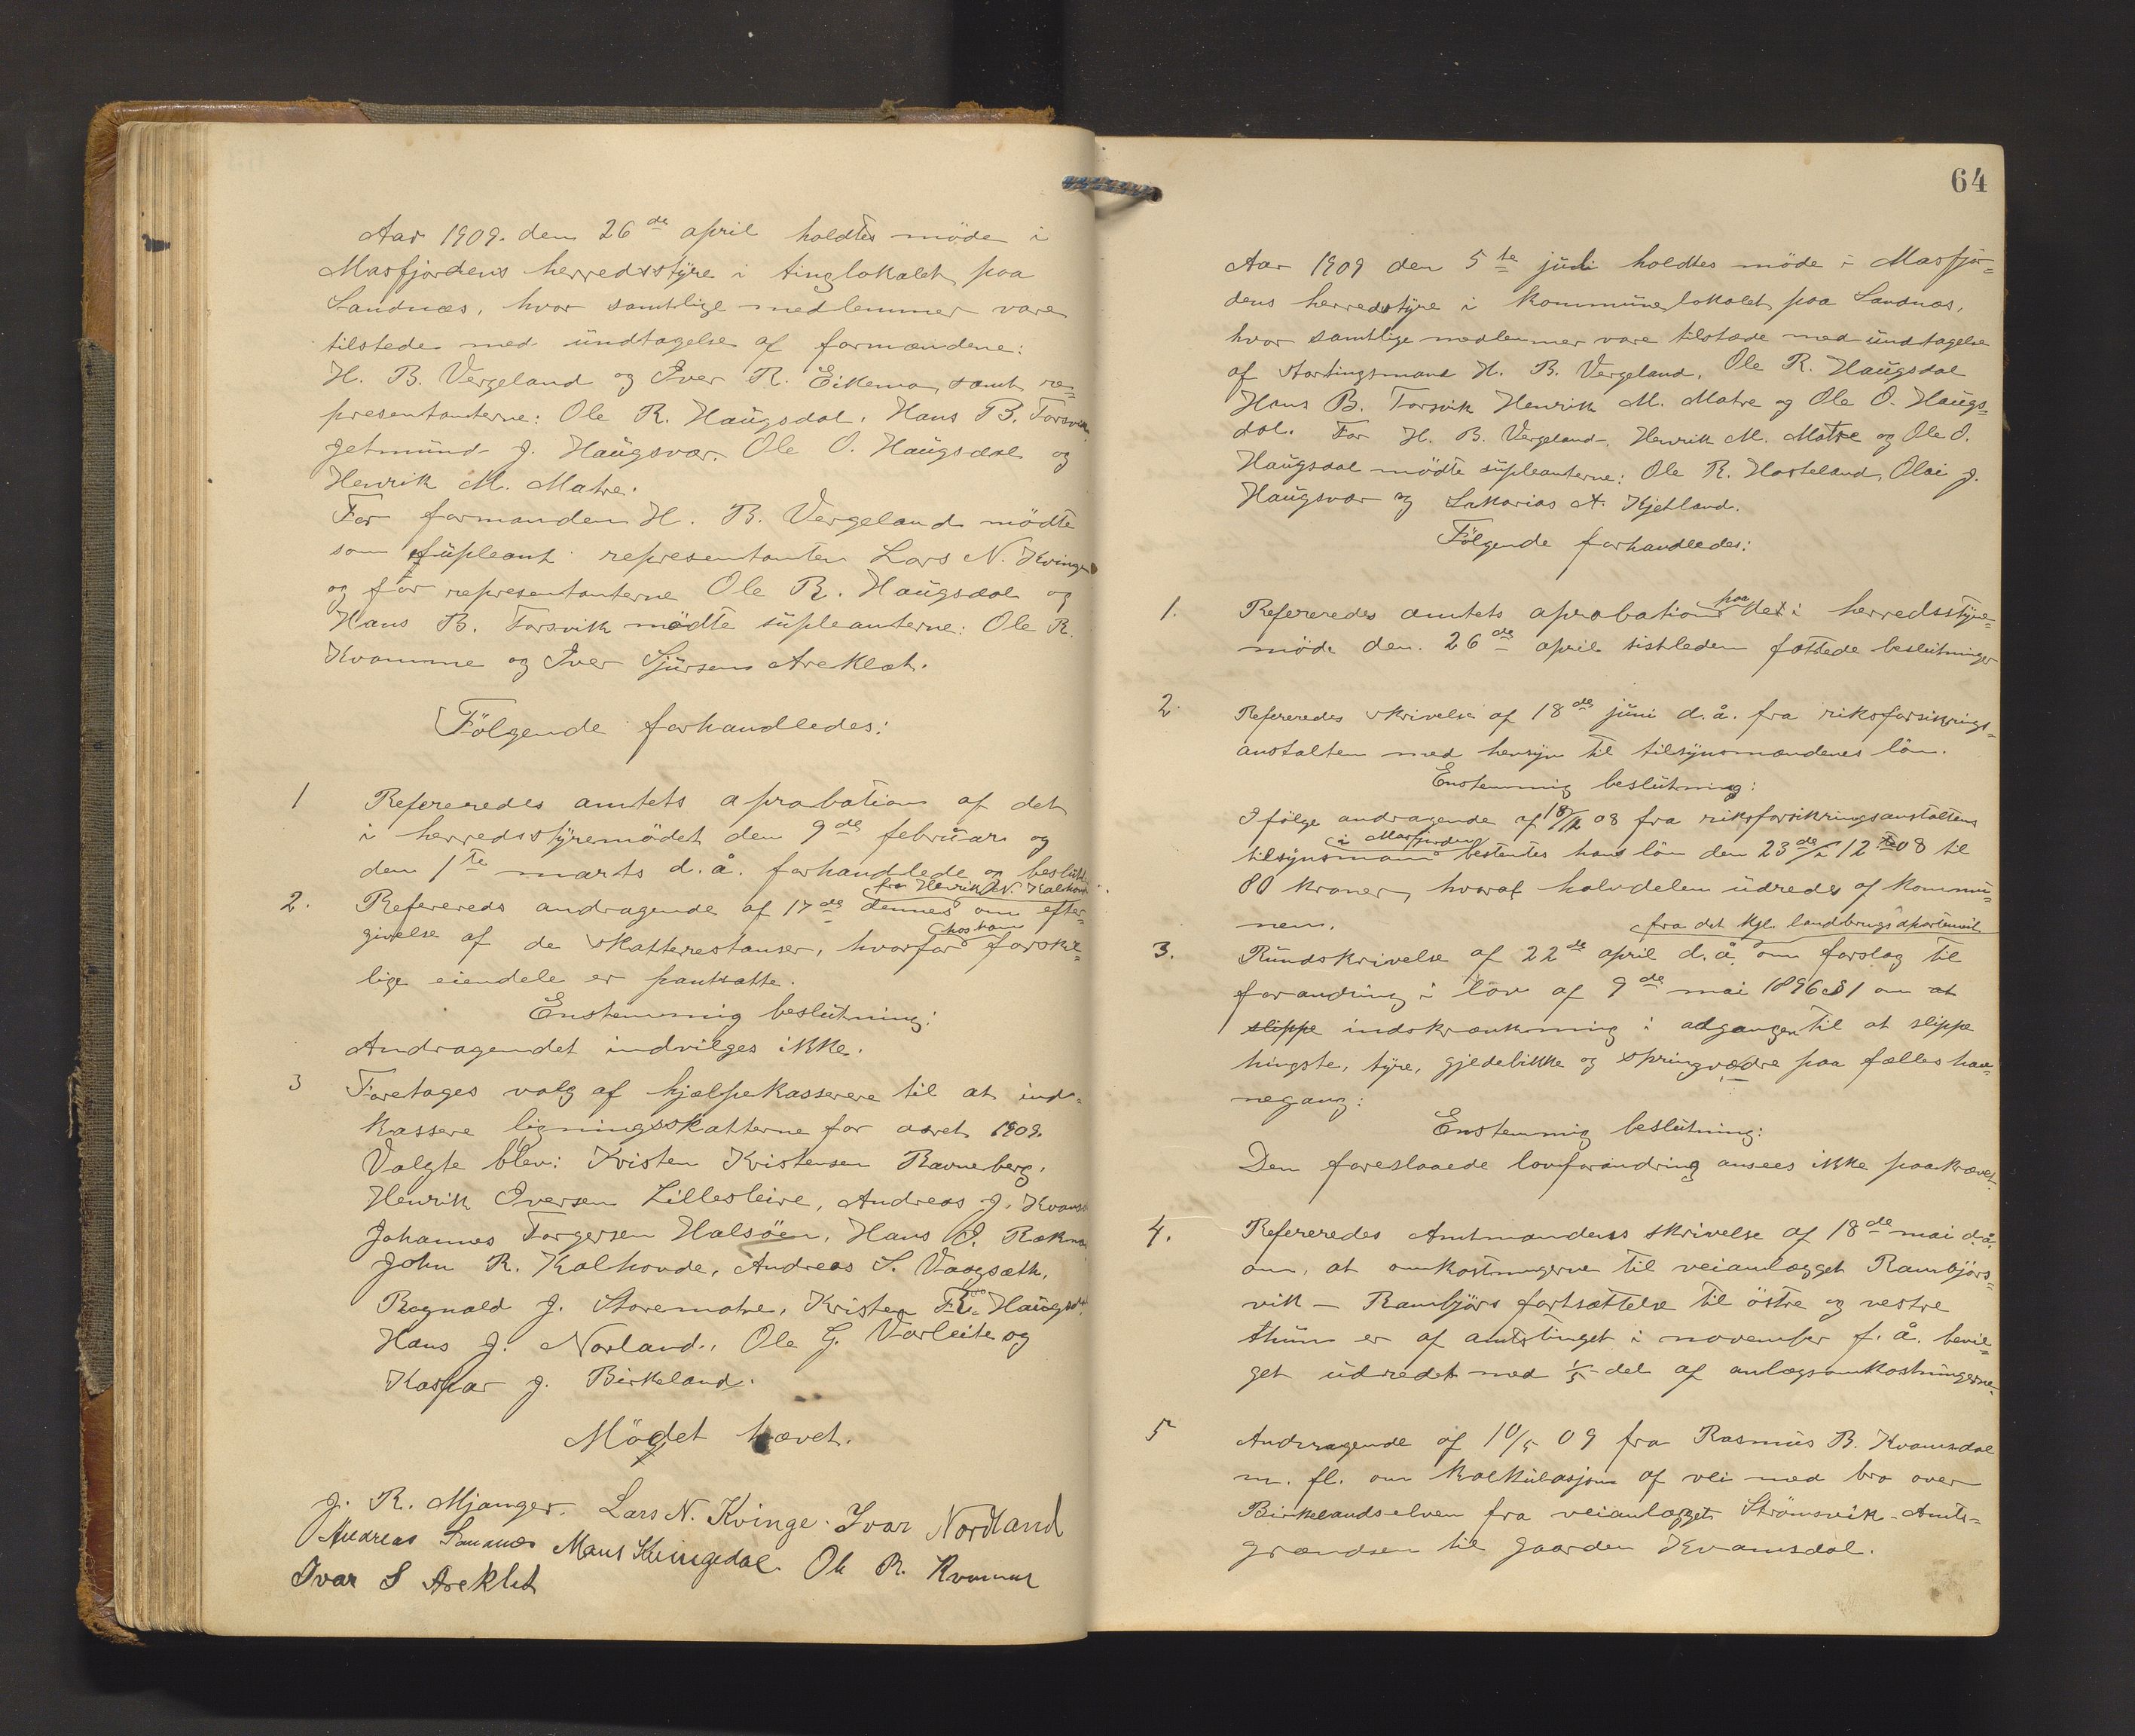 Aar 1909. den 26de april holdtes möde i
Masfjordens herredsstyre i tinglokalet paa
Sandnæs, hvor samtlige medlemmer vare
tilstede med undtagelse af formændene:
H. B. Vergeland og Iver R. Eikemo, samt re=
presentanterne: Ole R. Haugsdal, Hans B. Torsvik
Jetmund J. Haugsvær. Ole O. Haugsdal og
Henrik M. Matre.
For formanden H. B. Vergeland mödte
som supleant representanten Lars N. Kvinge
og for representanterne Ole R. Haugsdal og
Hans B. Torsvik mødte supleanterne: Ole R.
Kvamme og Iver Sjursen Areklet.
Fölgende forhandledes:
1 Refereredes amtets aprobation af det
i herredsstyremödet den 9de februar og
den 1te marts d.å. forhandlede og beslut
2. Referereds andragende af 17de dennes fra Henrik N. Kalhovd om efter=
givelse af de skatterestanser, hvorfor hos ham forskel=
lige eiendele er pantsatte.
Enstemmig beslutning:
Andragendet indvilges ikke.
3 Foretages valg af hjælpekasserere til at ind=
kassere ligningsskatterne for aaret 1909.
Valgte blev: Kristen Kristensen Ravneberg,
Henrik Iversen Lillesleire, Andreas J.
Johannes Torgersen Halsöen, Hans
John R. Kalhovde, Andreas S. Vaagsæth,
Ragnald J. Storematre, Kristen R. Haugsdal
Hans J. Norland, Ole G. Varleite og
Kaspar J. Birkeland.
Mödet hævet.
J. R. Mjanger. Lars N. Kvinge. Ivar Nordland
Andreas Sandnæs Mons Kvingedal. Ole R. Kvamme
Ivar S Areklet
64
Aar 1909 den 5te juli holdtes möde i Masfjor=
dens herredstyre i kommunelokalet paa Sandnæs,
hvor samtlige medlemmer vare tilstede med undtagelse
af stortingsmand H. B. Vergeland, Ole R. Haugsdal
Hans B. Torsvik Henrik M. Matre og Ole O. Haugs=
dal. For H. B. Vergeland, Henrik M. Matre og Ole O.
Haugsdal mödte supleanterne: Ole R. Hosteland, Olai J.
Haugsvær og Sakarias A. Kjetland.
Fölgende forhandledes:
1. Refereredes amtets aprobation paa det i herredsstyre=
möde den 26de april sistleden fattede beslutninger
2. Refereredes skrivelse af 18de juni d.å. fra riksforsikrings=
anstalten med hensyn til tilsynsmændenes lön.
Enstemmig beslutning:
Ifölge andragende af 18/12 08 fra riksforsikringsanstaltens
tilsynsmand i Masfjorden bestemtes hans lön den 23de/12 08 til
80 kroner, hvoraf halvdelen udredes af kommu=
nen.
3. Rundskrivelse af 22de april d.å. fra det kgl. landbrugsdepartement om forslag til
forandring i lov af 9de mai 1896 § 1 om at
slippe indskrænkning i adgangen til at slippe
hingste, tyre, gjedebukke og springvædre paa fælles hav=
negang:
Enstemmig beslutning:
Den foreslaaede lovforandring ansees ikke paakrævet.
4. Refereredes Amtmandens skrivelse af 18de mai d.å.
om, at omkostningerne til veianlægget Rambjörs=
vik – Rambjörs fortsættelse til östre og vestre
thun er af amtstinget i november f. å. bevil=
get udredet med 1/5 del af anlægsomkostningerne.
5 Andragende af 10/5 09 fra Rasmus B. Kvamsdal
m. fl. om kalkulasjon af vei med bro over
Birkelandselven fra veianlægget Strömsvik-Amts=
grændsen til gaarden Kvamsdal.